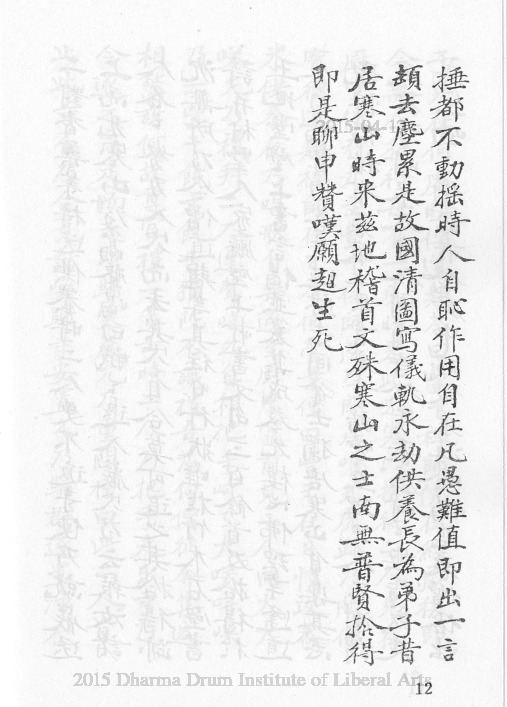 捶都不動搖時人自恥作用自在凡愚難值即出一言
頓去塵累是故國清圖寫儀軌永劫供養長為弟子昔
居寒山時來茲地稽首文殊寒山之士南無普賢拾得
即是聊申贊嘆願超生死
2015-04-1
2015 Dharma Drum Institute of Liberal Arts
12